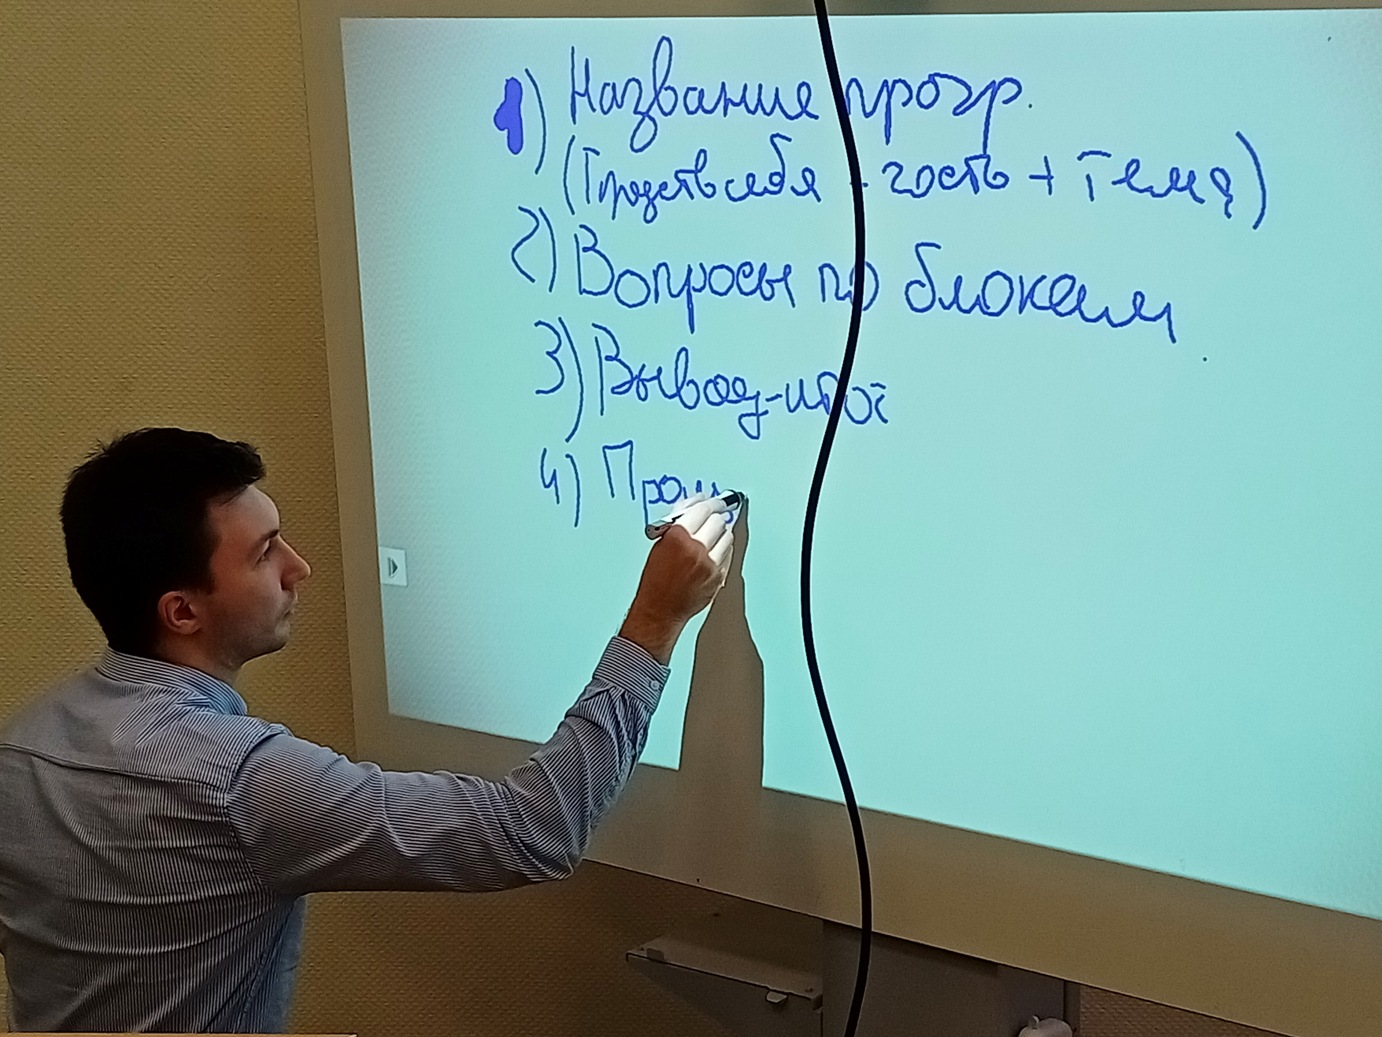 1) Название прогр.
(Представ себя - гость + тема)
2) Вопросы по блокам
3) Вывод-итог
4) Прощ